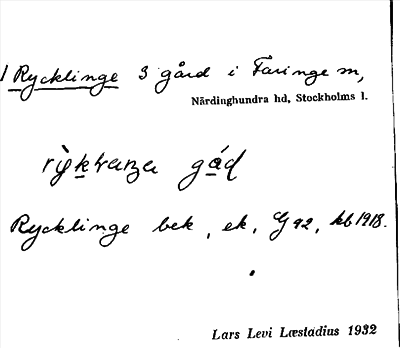 1 Rycklinge 3 gård i Faringe sn,
Närdinghundra hd, Stockholms l.
Rycklinge bek, ek, Gj 92, kb 1918.
Lars Levi Læstadius 1932